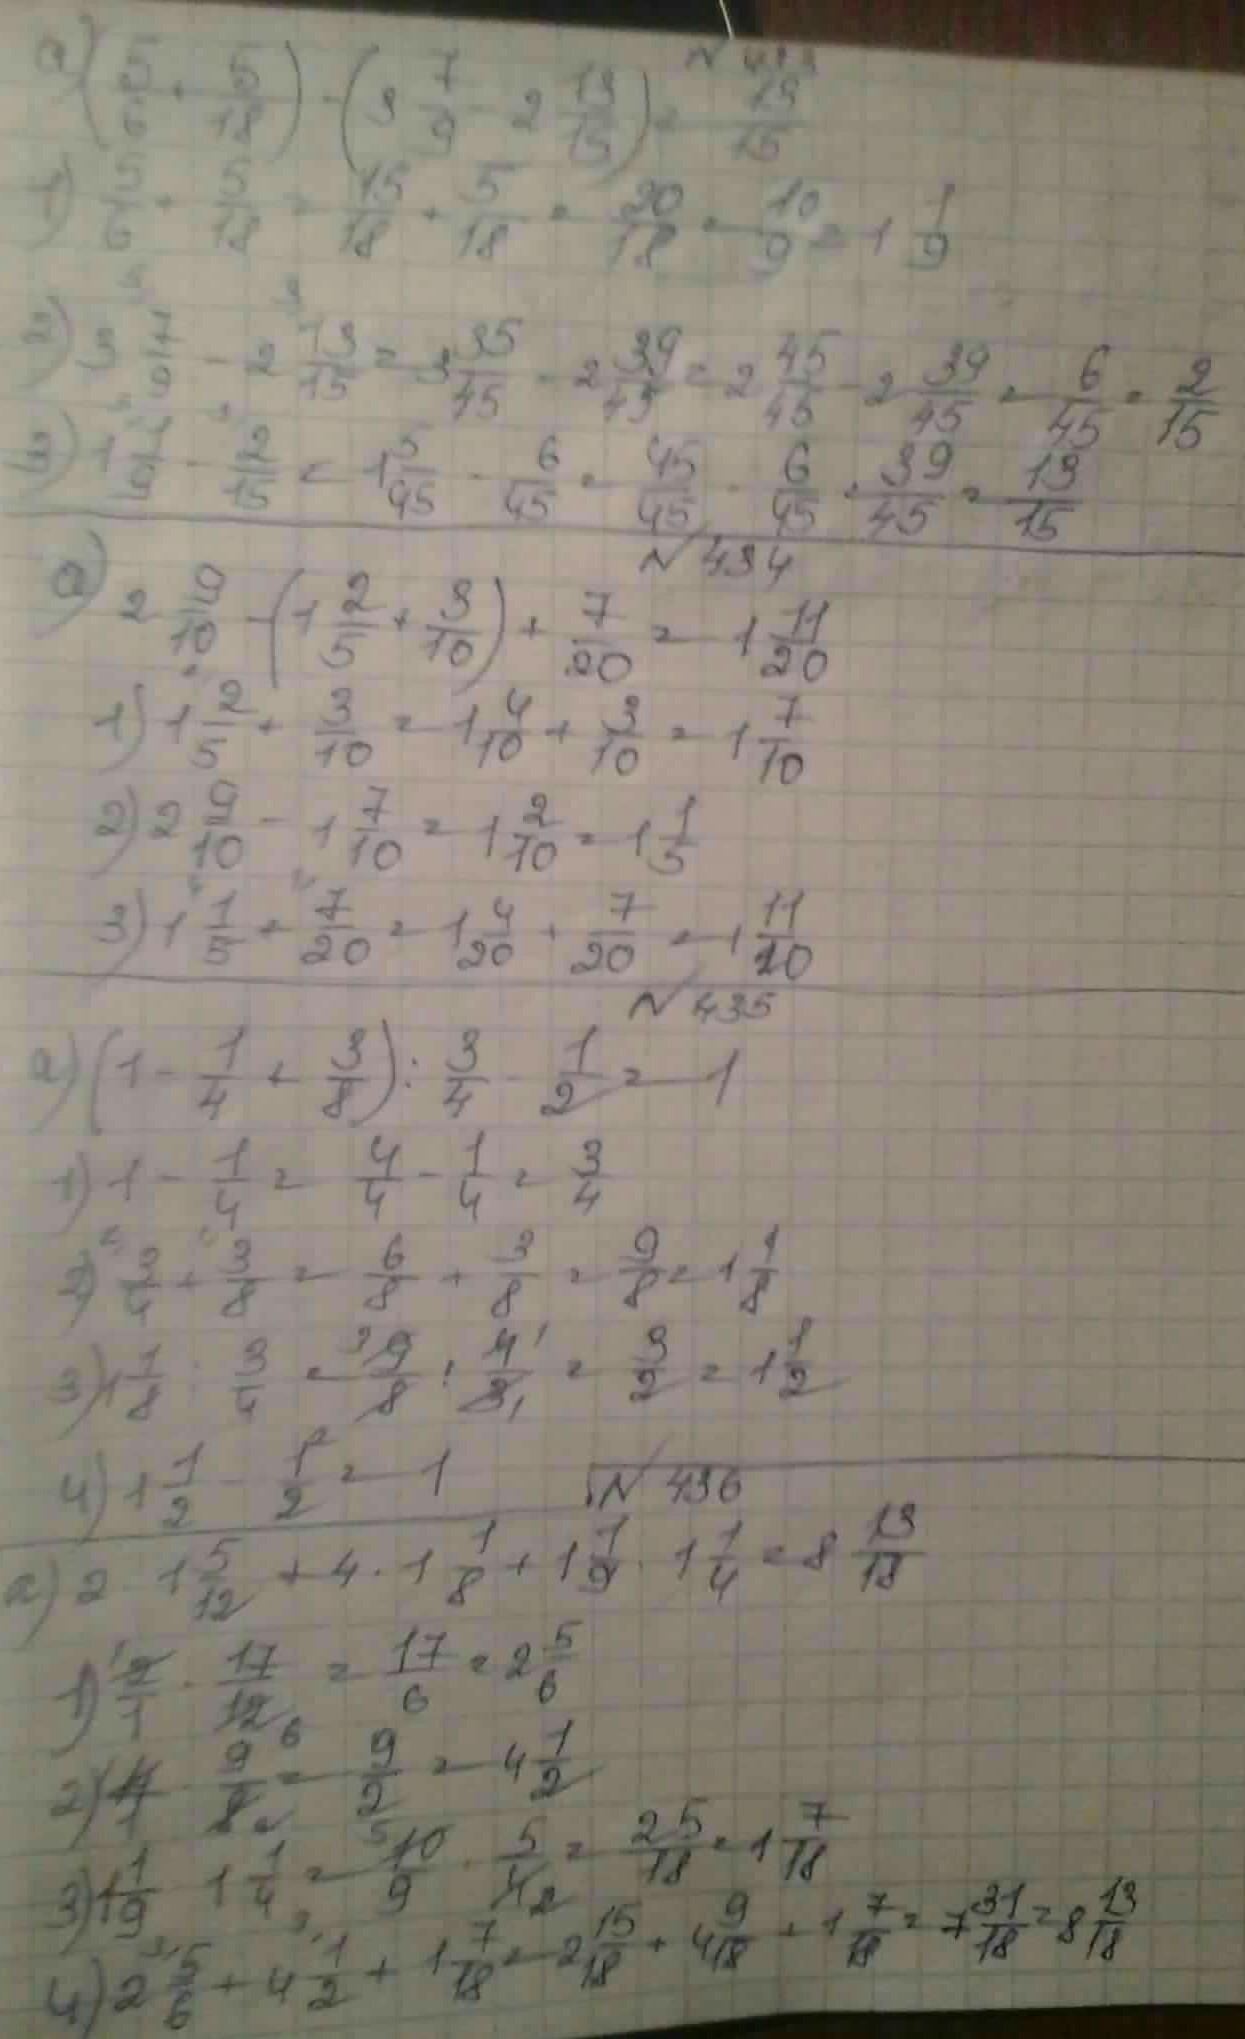 № 433
а) (5/6 + 5/18) - (3 7/9 - 2 13/15) = 13/15
1) 5/6 + 5/18 = 15/18 + 5/18 = 20/18 = 10/9 = 1 1/9
2) 3 7/9 - 2 13/15 = 3 35/45 - 2 39/45 = 2 45/45 - 2 39/45 = 6/45 = 2/15
3) 1 1/9 - 2/15 = 1 5/45 - 6/45 = 45/45 - 6/45 = 39/45 = 13/15
№ 434
а) 2 9/10 - (1 2/5 + 3/10) + 7/20 = 1 11/20
1) 1 2/5 + 3/10 = 1 4/10 + 3/10 = 1 7/10
2) 2 9/10 - 1 7/10 = 1 2/10 = 1 1/5
3) 1 1/5 + 7/20 = 1 4/20 + 7/20 = 1 11/20
№ 435
а) (1 - 1/4 + 3/8) : 3/4 - 1/2 = 1
1) 1 - 1/4 = 4/4 - 1/4 = 3/4
2) 3/4 + 3/8 = 6/8 + 3/8 = 9/8 = 1 1/8
3) 1 1/8 : 3/4 = 9/8 : 4/3 = 3/2 = 1 1/2
4) 1 1/2 - 1/2 = 1
№ 436
а) 2 · 1 5/12 + 4 · 1 1/8 + 1 1/9 · 1 1/4 = 8 13/18
1) 2/1 · 17/12 = 17/6 = 2 5/6
2) 4/1 · 9/8 = 9/2 = 4 1/2
3) 1 1/9 · 1 1/4 = 10/9 · 5/4 = 25/18 = 1 7/18
4) 2 5/6 + 4 1/2 + 1 7/18 = 2 15/18 + 4 9/18 + 1 7/18 = 7 31/18 = 8 13/18